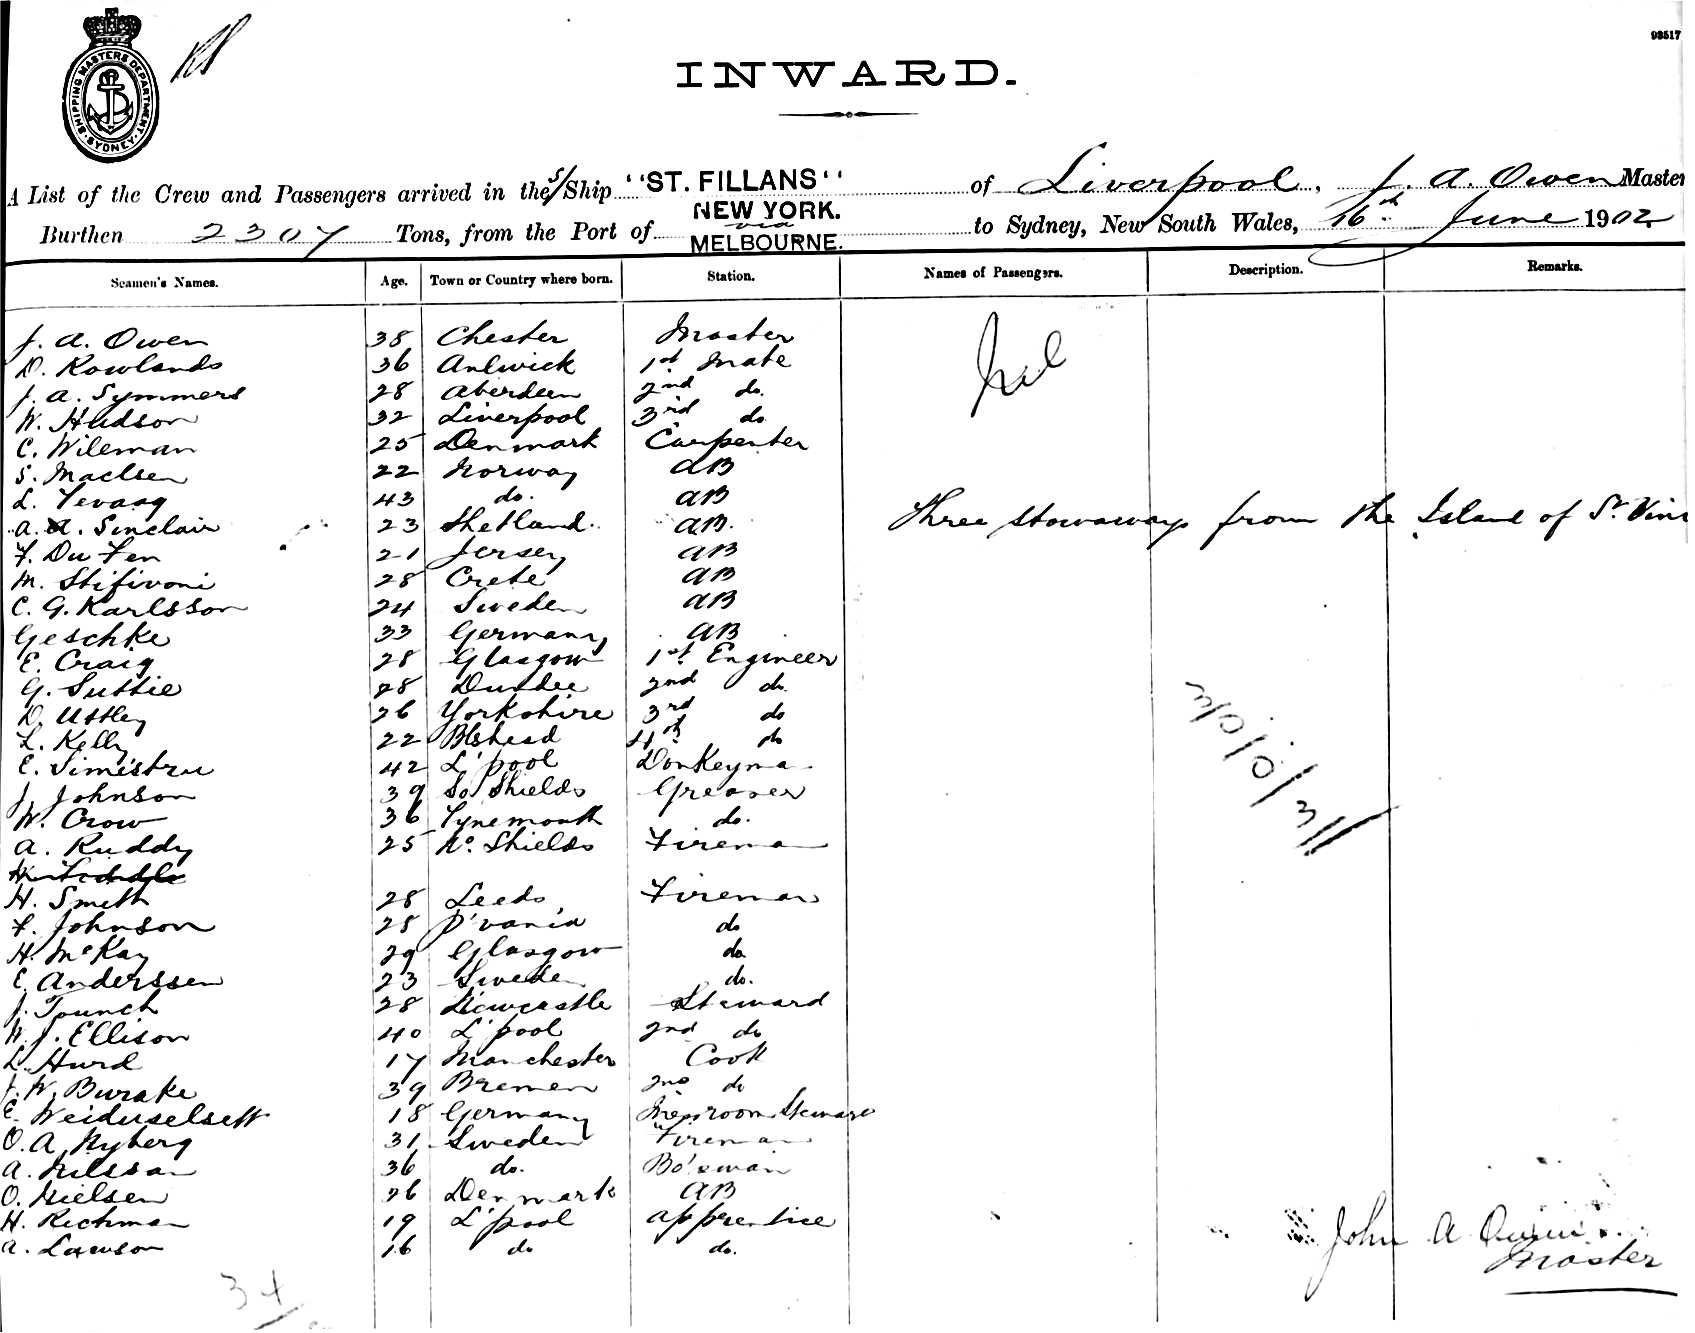 93517
SHIPPING MASTERS DEPARTMENT
SYDNEY
INWARD.
A List of the Crew and Passengers arrived in the S/Ship "ST. FILLANS" of Liverpool, J. A. Owen Master
Burthen 2307 Tons, from the Port of NEW YORK. via MELBOURNE. to Sydney, New South Wales, 16th June 1902
Seamen's Names. Age. Town or Country where born. Station. Names of Passengers. Description. Remarks.
J. A. Owen 38 Chester Master Nil
D. Rowlands 36 Anlwick 1st Mate
J. A. Symmers 28 Aberdeen 2nd do.
W. Hudson 32 Liverpool 3rd do
C. Wileman 25 Denmark Carpenter
S. Maelsen 22 Norway AB
L. 43 do. AB
A. A. Sinclair 23 Shetland AB. Three stowaways from the Island of St. Vinc
F. Du Fen 21 Jersey AB
M. Stifivoni 28 Crete AB
C. G. Karlsson 24 Sweden AB
Geschke 33 Germany AB
E. Craig 28 Glasgow 1st Engineer
G. Suttie 28 Dundee 2nd do.
D. Ustley 26 Yorkshire 3rd do
L. Kelly 22 B'head 4th do
E. Simistru 42 L'pool Donkeyma
J. Johnson 39 So Shields Greaser
W. Crow 36 Tynemouth do.
A. Ruddy 25 No. Shields Firema
H. Smith 28 Leeds Fireman
F. Johnson 28 P'vania do
H. McKay 29 Glasgow do
E. Anderssen 23 Sweden do.
J. Tpunch 28 Newcastle Steward
W. J. Ellison 40 L'pool 2nd do
L. Hurd 17 Manchester Cook
J. W. Burake 39 Bremen 2nd do
E. 18 Germany Messroom Steward
O. A. Nyberg 31 Sweden Fireman
A. Nilssan 36 do. Bo'swain
O. Nielsen 26 Denmark AB
H. Richman 19 L'pool apprentice
A. Lawson 16 do do.
John A Owen
Master
34